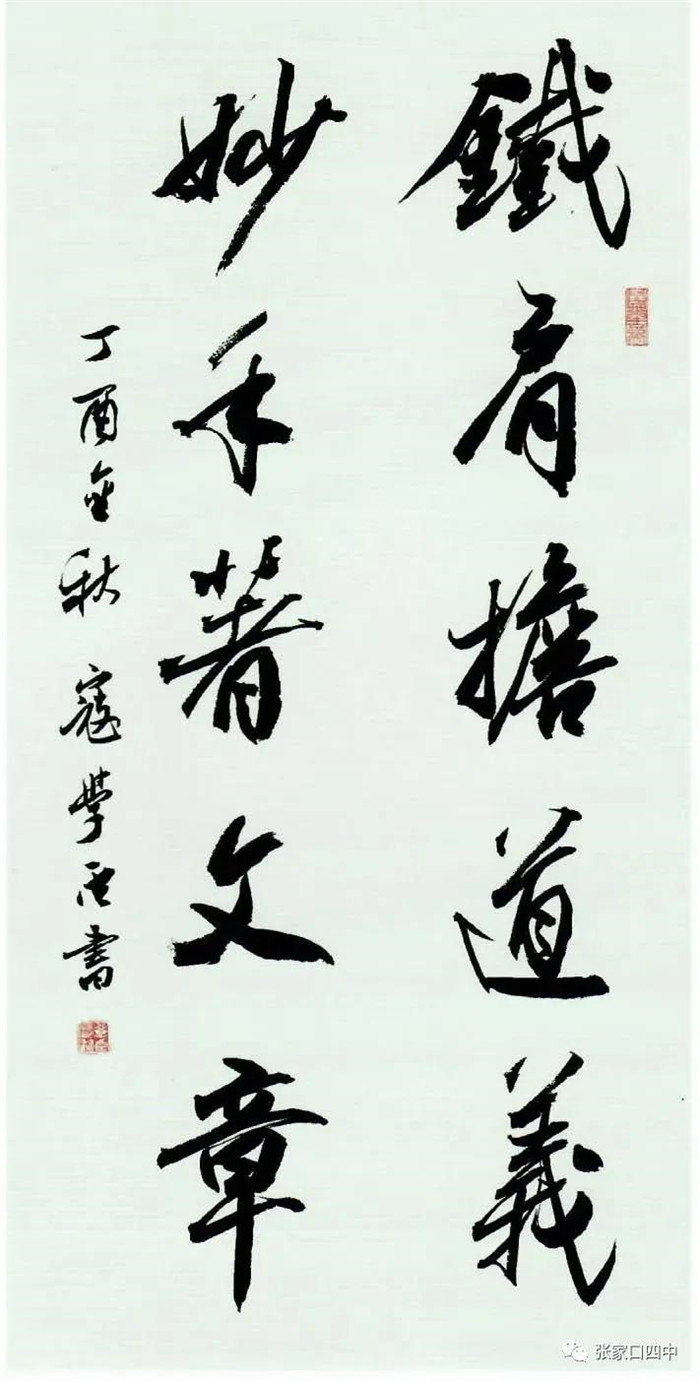 鐵肩擔道義
妙手著文章
丁酉金秋 寇學臣書
张家口四中